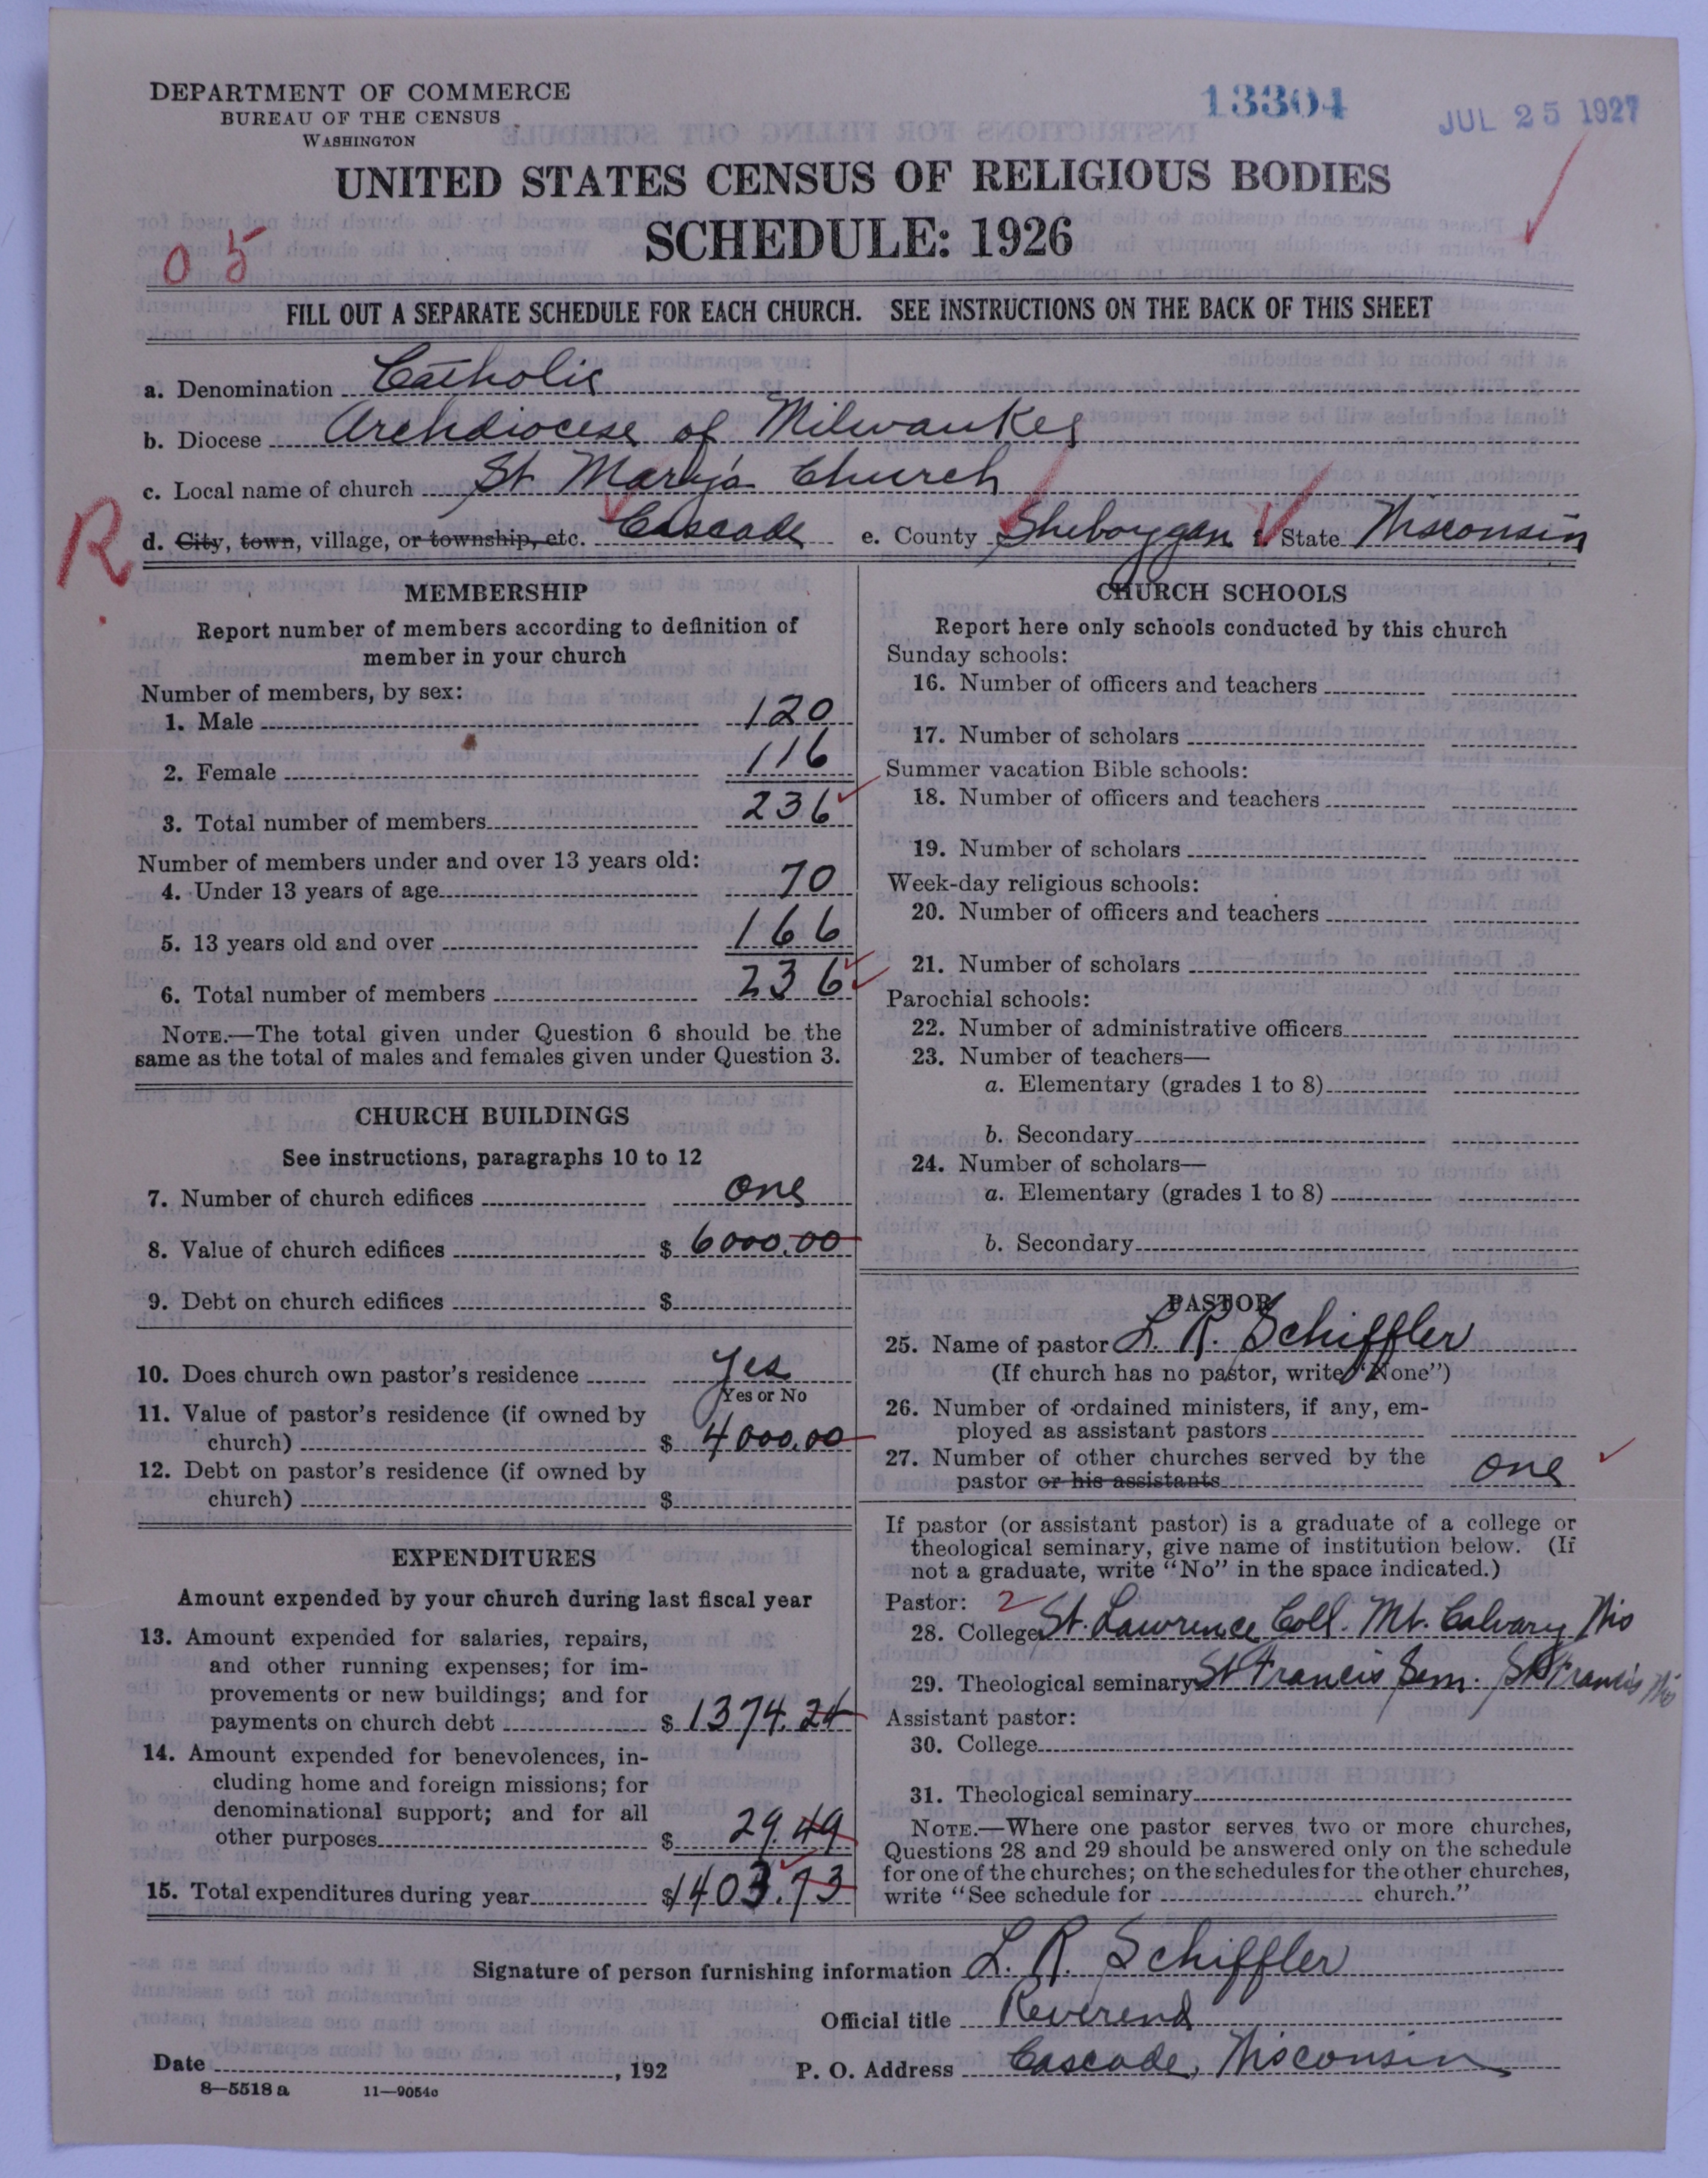 DEPARTMENT OF COMMERCE
BUREAU OF THE CENSUS
WASHINGTON
13304
JUL 25 1927
UNITED STATES CENSUS OF RELIGIOUS BODIES
SCHEDULE: 1926
05
FILL OUT A SEPARATE SCHEDULE FOR EACH CHURCH. SEE INSTRUCTIONS ON THE BACK OF THIS SHEET
a. Denomination Catholic
b. Diocese Archdiocese of Milwaukee
c. Local name of church St Mary's Church
R
d. City, town, village, or township, etc. Cascade e. County Sheboygan f. State Wisconsin
MEMBERSHIP
Report number of members according to definition of
member in your church
Number of members, by sex:
1. Male 120
2. Female 116
3. Total number of members 236
Number of members under and over 13 years old:
4. Under 13 years of age 70
5. 13 years old and over 166
6. Total number of members 236
NOTE.—The total given under Question 6 should be the
same as the total of males and females given under Question 3.
CHURCH BUILDINGS
See instructions, paragraphs 10 to 12
7. Number of church edifices one
8. Value of church edifices $ 6000.00
9. Debt on church edifices $
10. Does church own pastor's residence Yes
Yes or No
11. Value of pastor's residence (if owned by
church) $ 4000.00
12. Debt on pastor's residence (if owned by
church) $
EXPENDITURES
Amount expended by your church during last fiscal year
13. Amount expended for salaries, repairs,
and other running expenses; for im-
provements or new buildings; and for
payments on church debt $ 1374.24
14. Amount expended for benevolences, in-
cluding home and foreign missions; for
denominational support; and for all
other purposes $ 29.49
15. Total expenditures during year $ 1403.73
CHURCH SCHOOLS
Report here only schools conducted by this church
Sunday schools:
16. Number of officers and teachers
17. Number of scholars
Summer vacation Bible schools:
18. Number of officers and teachers
19. Number of scholars
Week-day religious schools:
20. Number of officers and teachers
21. Number of scholars
Parochial schools:
22. Number of administrative officers
23. Number of teachers—
a. Elementary (grades 1 to 8)
b. Secondary
24. Number of scholars—
a. Elementary (grades 1 to 8)
b. Secondary
PASTOR
25. Name of pastor L. R. Schiffler
(If church has no pastor, write "None")
26. Number of ordained ministers, if any, em-
ployed as assistant pastors
27. Number of other churches served by the
pastor or his assistants one
If pastor (or assistant pastor) is a graduate of a college or
theological seminary, give name of institution below. (If
not a graduate, write "No" in the space indicated.)
Pastor: 2
28. College St. Lawrence Coll. Mt. Calvary Wis
29. Theological seminary St Francis Sem. St Francis Wis
Assistant pastor:
30. College
31. Theological seminary
NOTE.—Where one pastor serves two or more churches,
Questions 28 and 29 should be answered only on the schedule
for one of the churches; on the schedules for the other churches,
write "See schedule for church."
Signature of person furnishing information L. R. Schiffler
Official title Reverend
Date , 192 P. O. Address Cascade, Wisconsin
8—5518 a 11—9054c